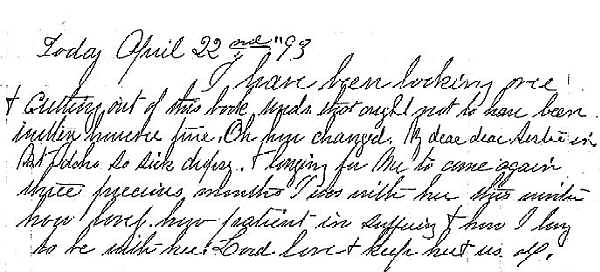 Today April 22nd "93
I have been looking over
& Cutting out of this book, words that ought not to have been
written however true. Oh how changed. My dear dear in
so sick & longing for Me to come again
three precious months I was with her this winter
how lovely how patient in suffering & how I long
to be with her. Lord love & keep her & us all.